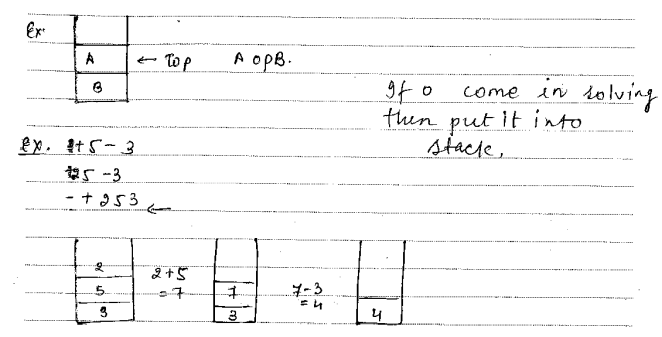 Ex.
A ← Top A opB.
B
If 0 come in solving
then put it into
stack,
Ex. 2+5-3
+25-3
- + 253 ←
2
5
3
2+5
=7
7
3
7-3
=4
4